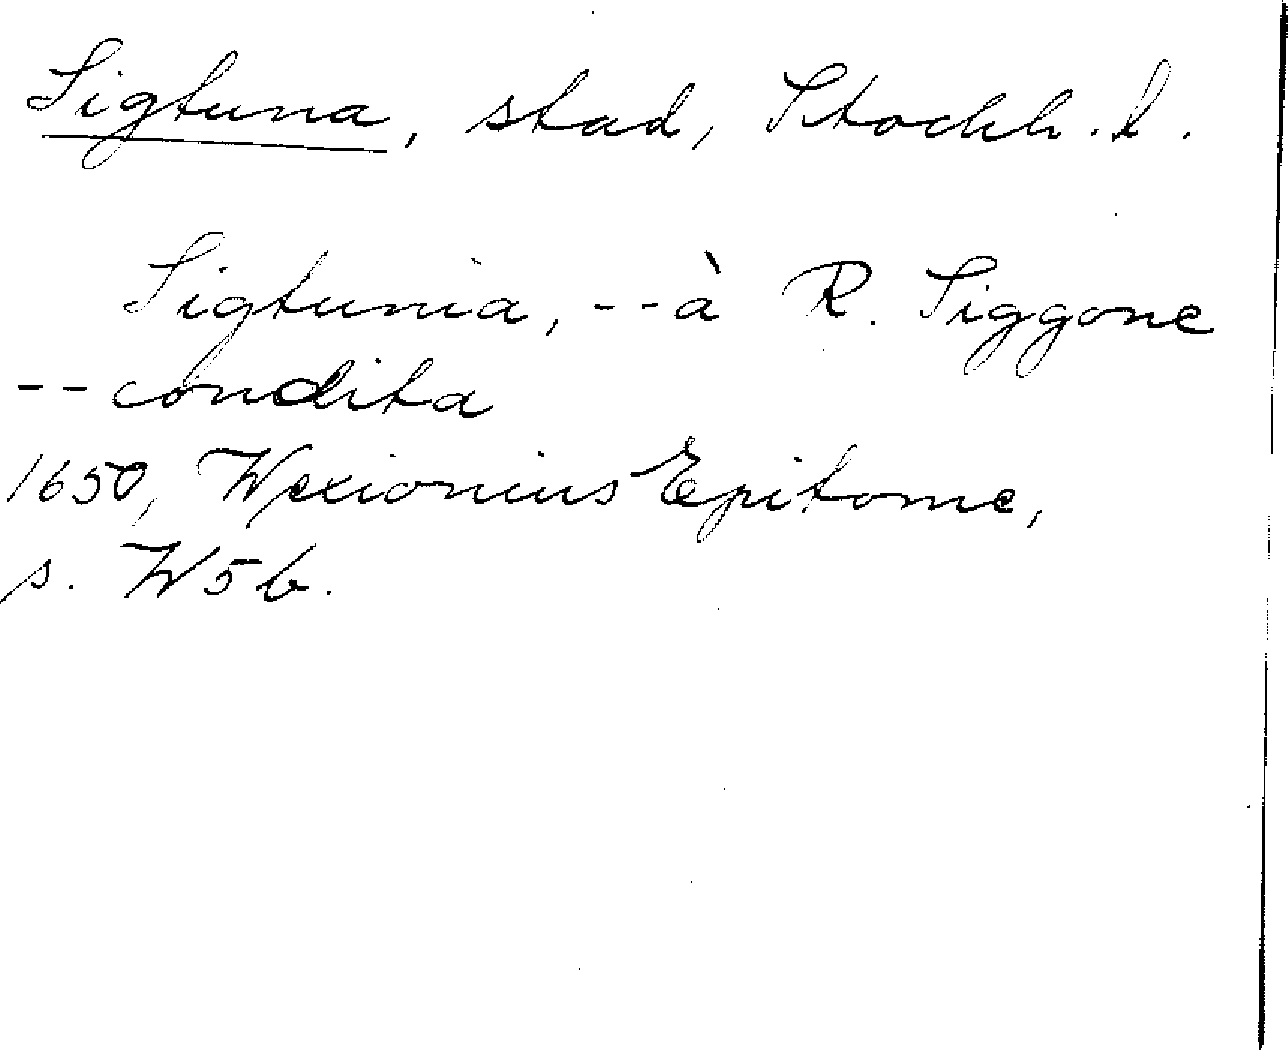 Sigtuna, stad, Stockh. l.
Sigtunia, -- à R. Siggone
-- condita
1650, Wexionius Epitome,
s. W5b.